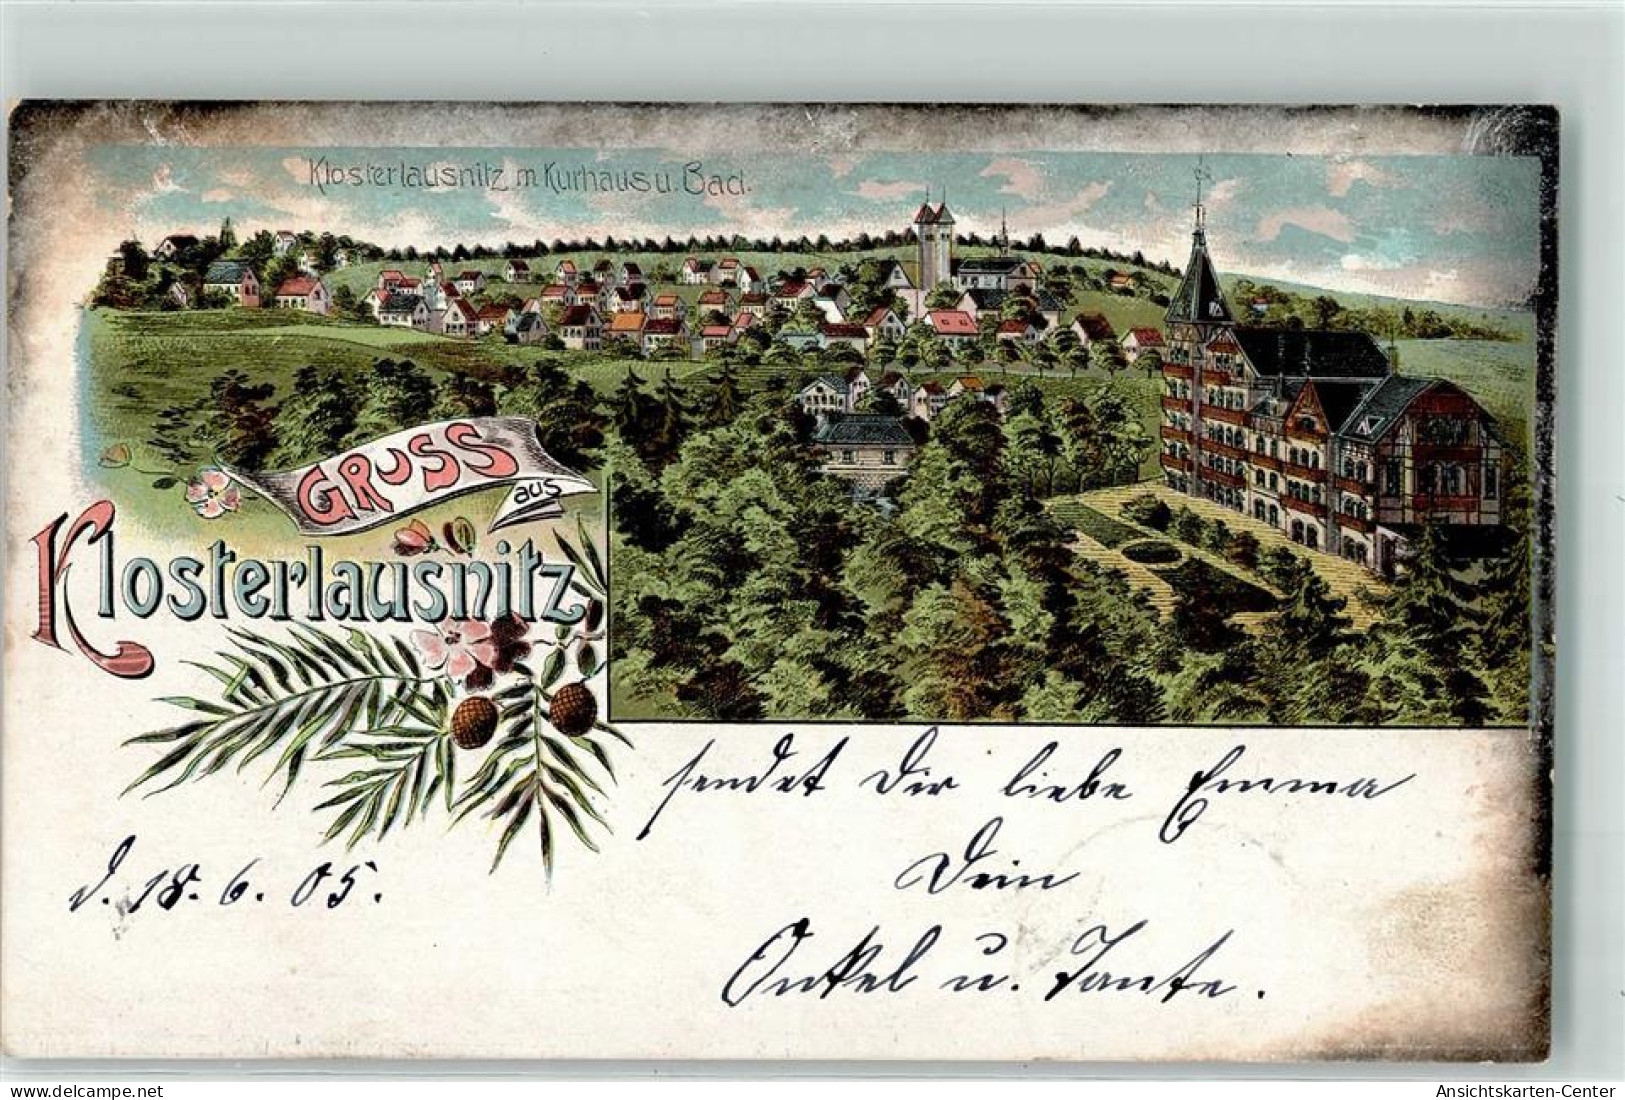 Klosterlausnitz m Kurhaus u. Bad.
GRUSS
aus
Klosterlausnitz
sendet Dir liebe Emma
Dein
d. 18.6.05.
Onkel u. Tante.
delcampe.net
Ansichtskarten-Center